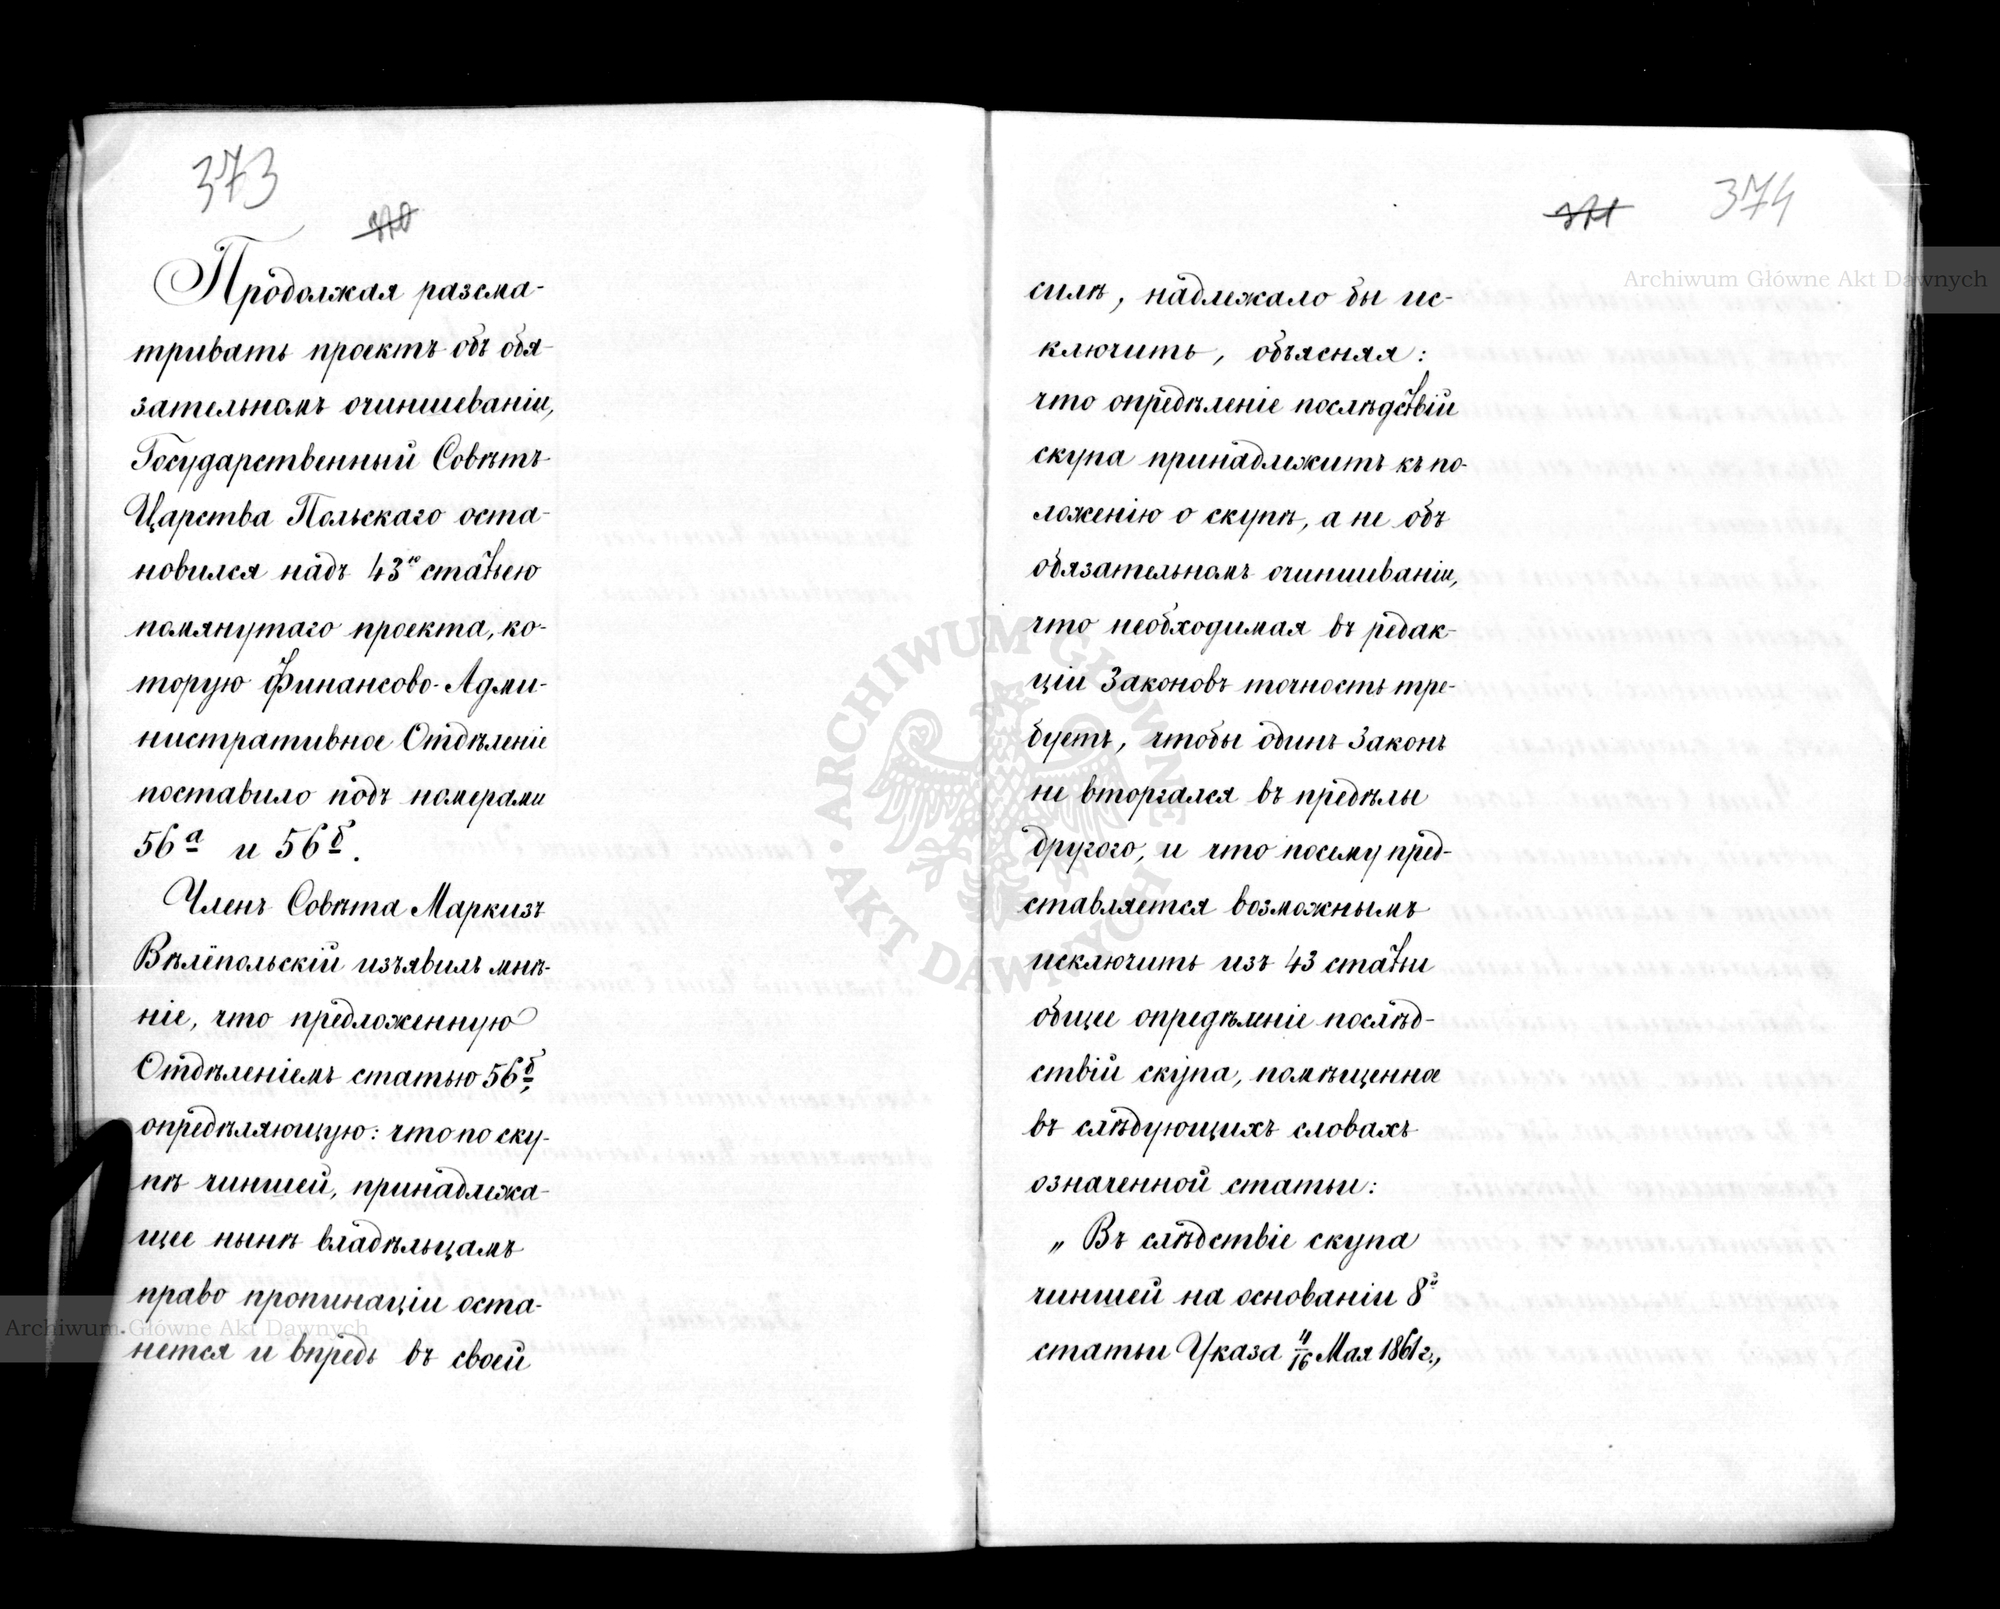 373
370
Продолжая разсма-
тривать проектъ объ обя-
зательномъ очиншеваніи,
Государственный Совѣтъ
Царства Польскаго оста-
новился надъ 43ю статьею
помянутаго проекта, ко-
торую Финансово-Адми-
нистративное Отдѣленіе
поставило подъ номерами
56а и 56б.
Членъ Совѣта Маркизъ
Вѣлёпольскій изъявилъ мнѣ-
ніе, что предложенную
Отдѣленіемъ статью 56б,
опредѣляющую: что по ску-
пѣ чиншей, принадлежа-
щее нынѣ владѣльцамъ
право пропинаціи оста-
нется и впредь въ своей
371
374
силѣ, надлежало бы ис-
ключить, объясняя:
что опредѣленіе послѣдствій
скупа принадлежитъ къ по-
ложенію о скупѣ, а не объ
обязательномъ очиншеваніи,
что необходимая въ редак-
ціи Законовъ точность тре-
буетъ, чтобы одинъ Законъ
не вторгался въ предѣлы
другого, и что посему пред-
ставляется возможнымъ
исключить изъ 43 статьи
общее опредѣленіе послѣд-
ствій скупа, помѣщенное
въ слѣдующихъ словахъ
означенной статьи:
„Въ слѣдствіе скупа
чиншей на основаніи 8й
статьи Указа 4/16 Мая 1861 г.,
Archiwum Główne Akt Dawnych
Archiwum Główne Akt Dawnych
ARCHIWUM GŁÓWNE
AKT DAWNYCH